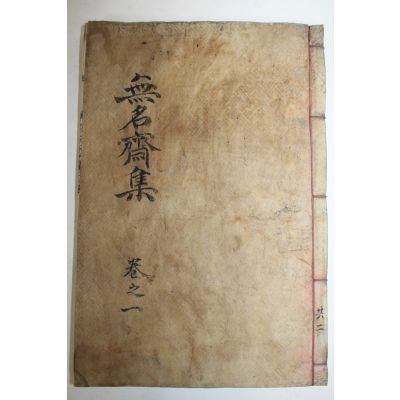 無名齋集
卷之一
共二